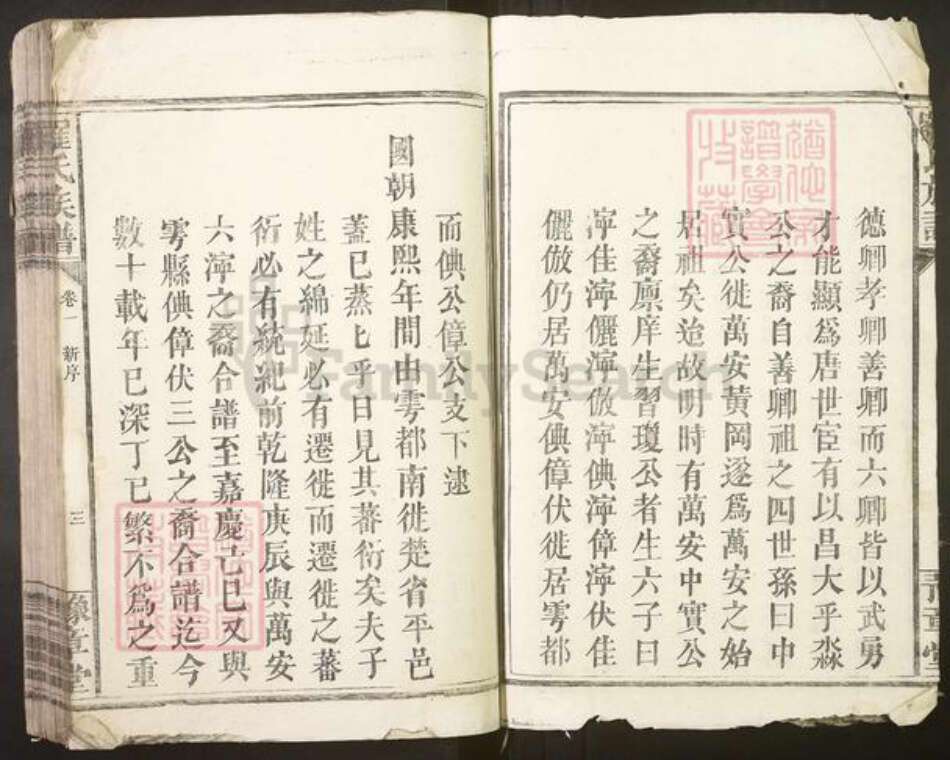 德卿孝卿善卿而六卿皆以武勇
才能顯爲唐世宦有以昌大乎淼
公之裔自善卿祖之四世孫曰中
實公徙萬安黃岡遂爲萬安之始
居祖矣迨故明時有萬安中實公
之裔廩庠生習瓊公者生六子曰
寧佳寧儷寧倣寧倎寧偉寧伏佳
儷倣仍居萬安倎偉伏徙居雩都
而倎公偉公支下逮
國朝康熙年間由雩都南徙楚省平邑
蓋已蒸上乎日見其蕃衍矣夫子
姓之綿延必有遷徙而遷徙之蕃
衍必有統紀前乾隆庚辰與萬安
六寧之裔合譜至嘉慶己巳又與
雩縣倎偉伏三公之裔合譜迄今
數十載年已深丁已繁不爲之重
羅氏族譜
卷一
新序
三
豫章堂
FamilySearch